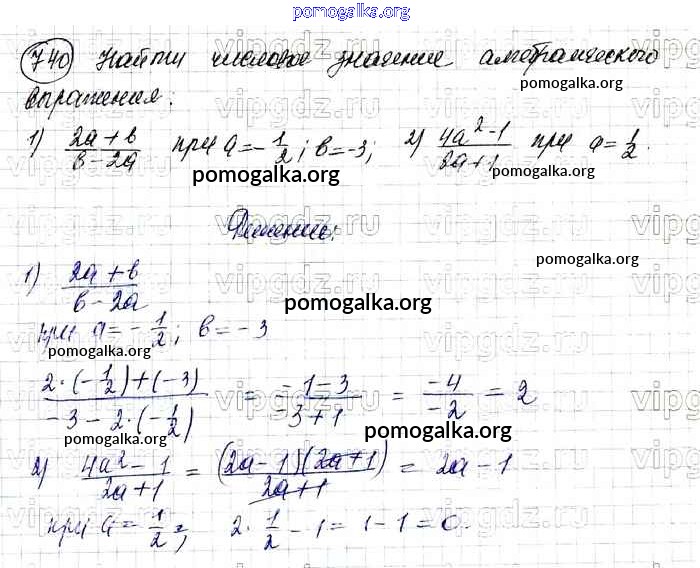 pomogalka.org
740 Найти числовое значение алгебраического
pomogalka.org
выражения:
1) (2a + b)/(b - 2a) при a = -1/2; b = -3; 2) (4a² - 1)/(2a + 1) при a = 1/2.
pomogalka.org pomogalka.org
Решение:
pomogalka.org
1) (2a + b)/(b - 2a)
pomogalka.org
при a = -1/2; b = -3
pomogalka.org pomogalka.org
(2·(-1/2) + (-3))/(-3 - 2·(-1/2)) = (-1 - 3)/(-3 + 1) = (-4)/(-2) = 2
pomogalka.org pomogalka.org
2) (4a² - 1)/(2a + 1) = ((2a - 1)(2a + 1))/(2a + 1) = 2a - 1
при a = 1/2; 2·1/2 - 1 = 1 - 1 = 0.
pomogalka.org
vipgdz.ru